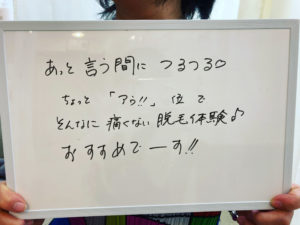 あっと言う間に つるつる♡
ちょっと 「アウ!!」 位で
そんなに 痛くない 脱毛体験♪
おすすめでーす!!